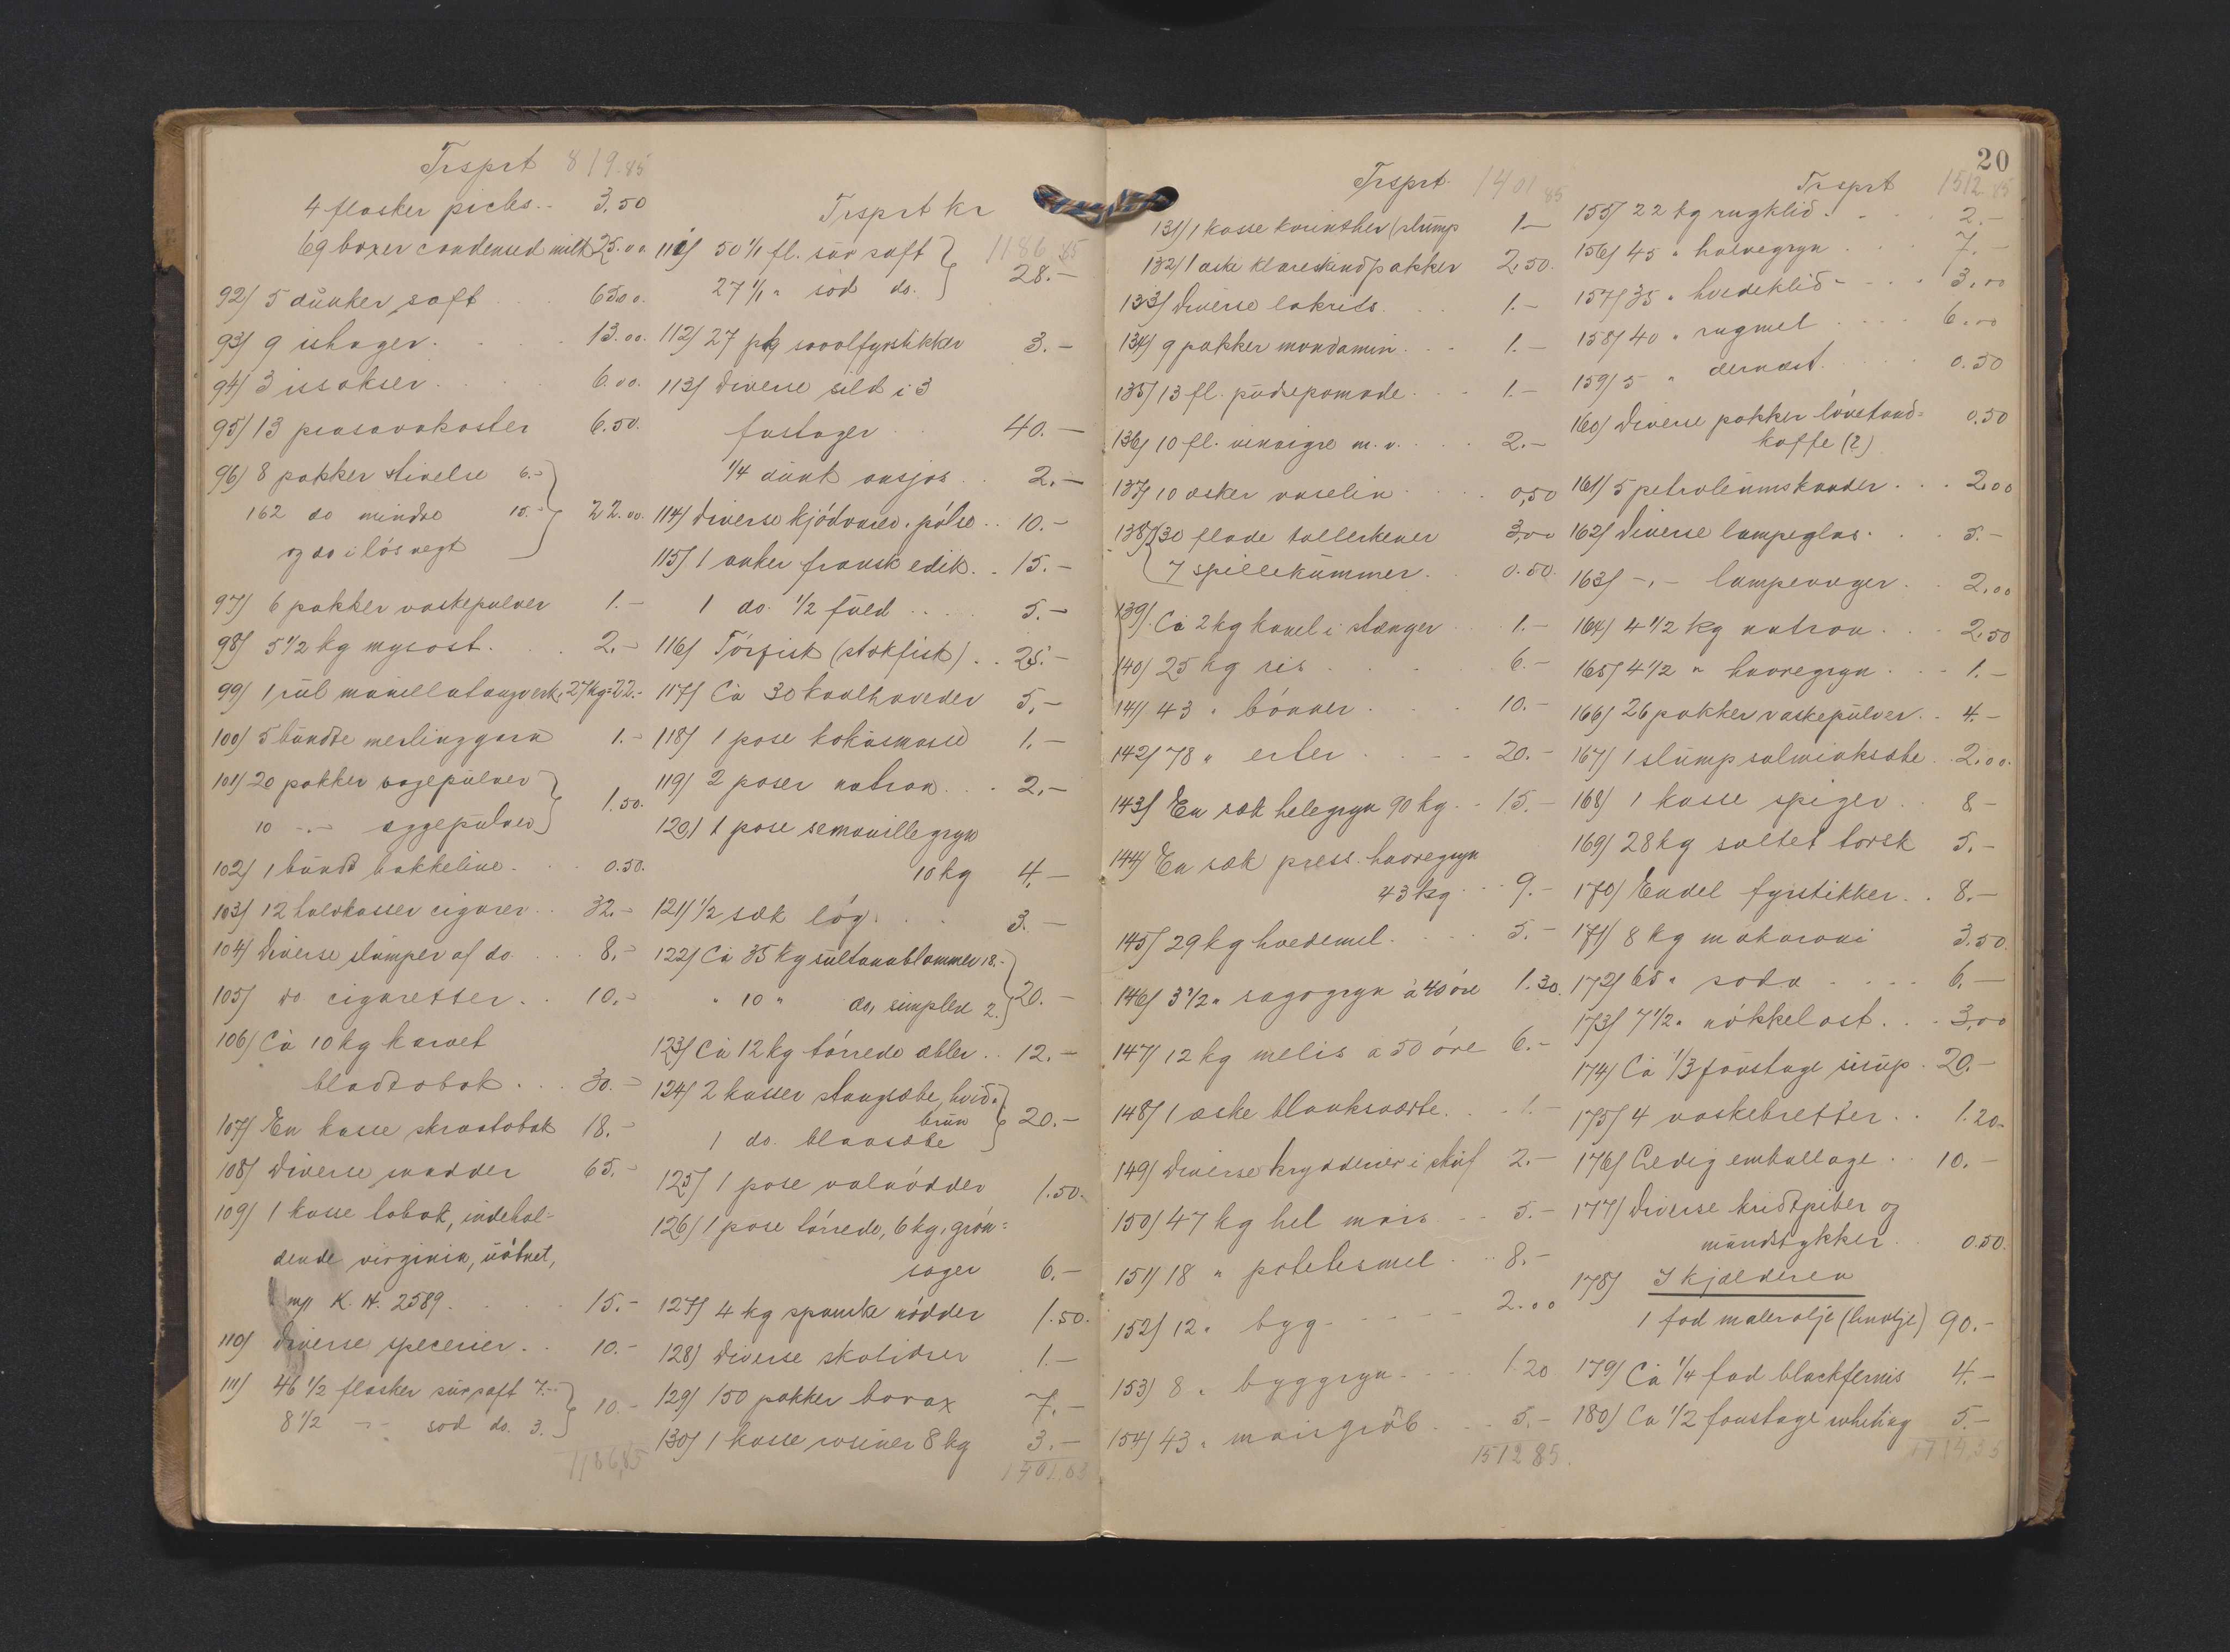 Trsprt 819.85
4 flasker picles .. 3,50
69 boxer condensed milk 25.00
92/ 5 dunker saft 6500.
93/ 9 ishager. 13.00.
94/ 3 issakser 6.00.
95/ 13 piasavakoster 6.50.
96/ 8 pakker stivelse 6.-
162 do mindre 15.- 22.00.
og do i løs vegt
97/ 6 pakker vaskepulver 1.-
98/ 5 1/2 kg mysost. 2.-
99/ 1 rul manillataugverk, 27kg=22.-
100/ 5 bundte merlinggarn 1.-
101/ 20 pakker bagepulver
10 -.- eggepulver 1.50.
102/ 1 bundt bakkeline. 0.50.
103/ 12 halvkasser cigarer .. 32.-
104/ Diverse slumper af do. 8.-
105/ do cigaretter. .. 10.-
106/ Ca 10 kg karvet
bladtobak ... 30.-
107/ En kasse skraatobak 18.-
108/ Diverse sradder 65.-
109/ 1 kasse tobak, indehol-
dende virginia, uåbnet,
mp K. N. 2589. 15.-
110/ Diverse specerier. .. 10.-
111/ 46 1/2 flasker sur saft 7.-
8 1/2 -.- sød do. 3. 10.-
1186,85
Trsprt kr 1186.85
111/ 50 1/1 fl. sur saft
27 1/1 " sød do. 28.-
112/ 27 pk svovlfyrstikker 3.-
113/ Diverse sild i 3
fustager 40.-
1/4 dunk ansjos .. 2.-
114/ Diverse kjødvarer, pølse .. 10.-
115/ 1 anker fransk edik .. 15.-
1 do. 1/2 fuld .... 5.-
116/ Tørfisk (stokfisk) .. 25.-
117/ Ca 30 kaalhoveder 5.-
118/ 1 pose kokusmasse 1.-
119/ 2 poser natron ... 2.-
120/ 1 pose semouillegryn
10 kg 4.-
121/ 1/2 sæk løg. 3.-
122/ Ca 35 kg sultanablommer 18.-
" 10 " do, simplere 2. 20.-
123/ Ca 12 kg tørrede æbler .. 12.-
124/ 2 kasser stangsæbe, hvid &
brun
1 do. blaasæbe 20.-
125/ 1 pose valnødder 1.50.
126/ 1 pose tørrede, 6 kg, grøn-
sager 6.-
127/ 4 kg spanske nødder 1.50.
128/ Diverse skotidser 1.-
129/ 150 pakker borax 7.-
130/ 1 kasse rosiner 8 kg 3.-
1401.85
20
Trsprt. 1401 85
131/ 1 kasse korinther (slump 1.-
132/ 1 æske klareskindpakker 2.50.
133/ Diverse lakrids. 1.-
134/ 9 pakker mondamin. 1.-
135/ 13 fl. pudrepomade. 1.-
136/ 10 fl. vinaigre m. v. 2.-
137/ 10 æsker vaselin 0,50
138/ 30 flade tallerkener 3,00
7 spillekummer. 0.50.
139/ Ca 2 kg kanel i stænger 1.-
140/ 25 kg ris 6.-
141/ 43 " bønner 10.-
142/ 78 " erter 20.-
143/ En sæk helegryn 90 kg .. 15.-
144/ En sæk press. havregryn
43 kg ... 9.-
145/ 29 kg hvedemel. 5.-
146/ 3 1/2 " sagogryn à 40 øre 1.30.
147/ 12 kg melis a 50 øre 6.-
148/ 1 æske blanksværte. 1.-
149/ Diverse krydderier i skuf 2.-
150/ 47 kg hel mais .. 5.-
151/ 18 " potetesmel .. 8.-
152/ 12 " byg 2.00
153/ 8 " byggryn 1.20
154/ 43 " maisgrøb 5.-
1512 85.
Trsprt 1512.85
155/ 22 kg rugklid. 2.-
156/ 45 " halvegryn 7.-
157/ 35 " hvedeklid 3.00
158/ 40 " rugmel 6.00
159/ 5 " dernæst. 0.50
160/ Diverse pakker løvetand- 0.50
kaffe (?)
161/ 5 petroleumskander ... 2.00
162/ Diverse lampeglas. 5.-
163/ -.- lampevæger .. 2.00
164/ 4 1/2 kg natron ... 2.50
165/ 4 1/2 " havregryn ... 1.-
166/ 26 pakker vaskepulver .. 4.-
167/ 1 slump salmiaksæbe .. 2.00.
168/ 1 kasse spiger .. 8 -
169/ 28 kg saltet torsk 5.-
170/ Endel fyrstikker .. 8.-
171/ 8 kg makaroni 3.50.
172/ 65 " soda .... 6.-
173/ 7 1/2 " nøkkelost ... 3,00
174/ Ca 1/3 faustage sirup . 20.-
175/ 4 vaskebretter .. 1.20.
176/ Ledig emballage .. 10.-
177/ Diverse kridtpiber og
mundstykker .. 0.50.
178/ I kjælderen
1 fad malerolje (linolje) 90.-
179/ Ca 1/4 fad blackfernis 4.-
180/ Ca 1/2 faustage whiting 5.-